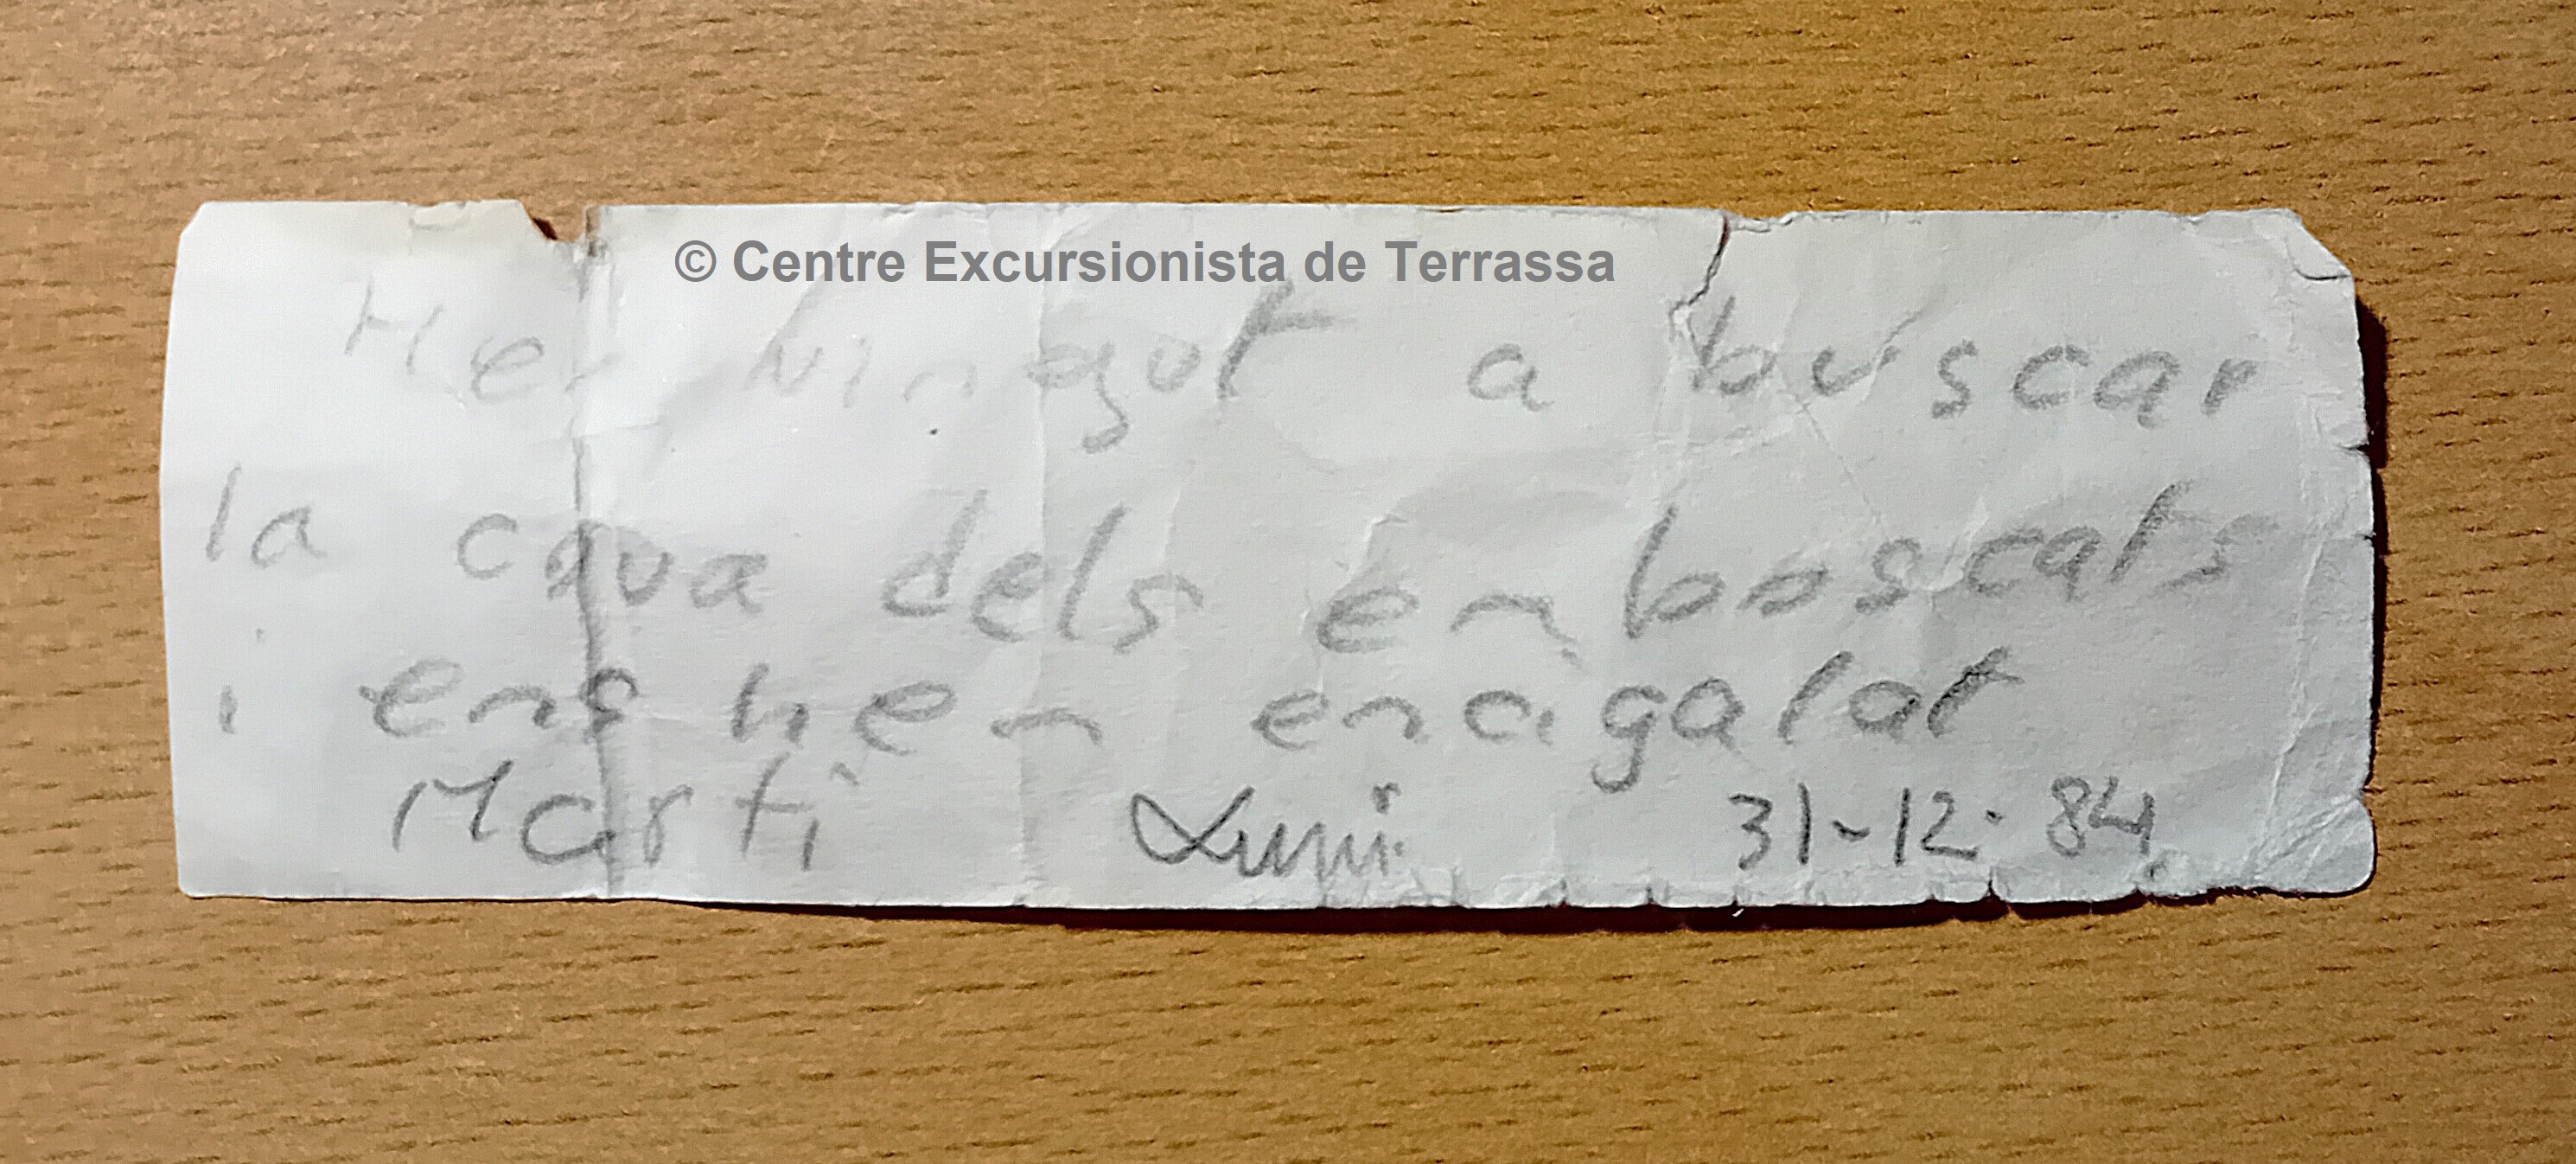 © Centre Excursionista de Terrassa
Hem vingut a buscar
la cova dels enboscats
i ens hem encigalat
Martí 31-12-84